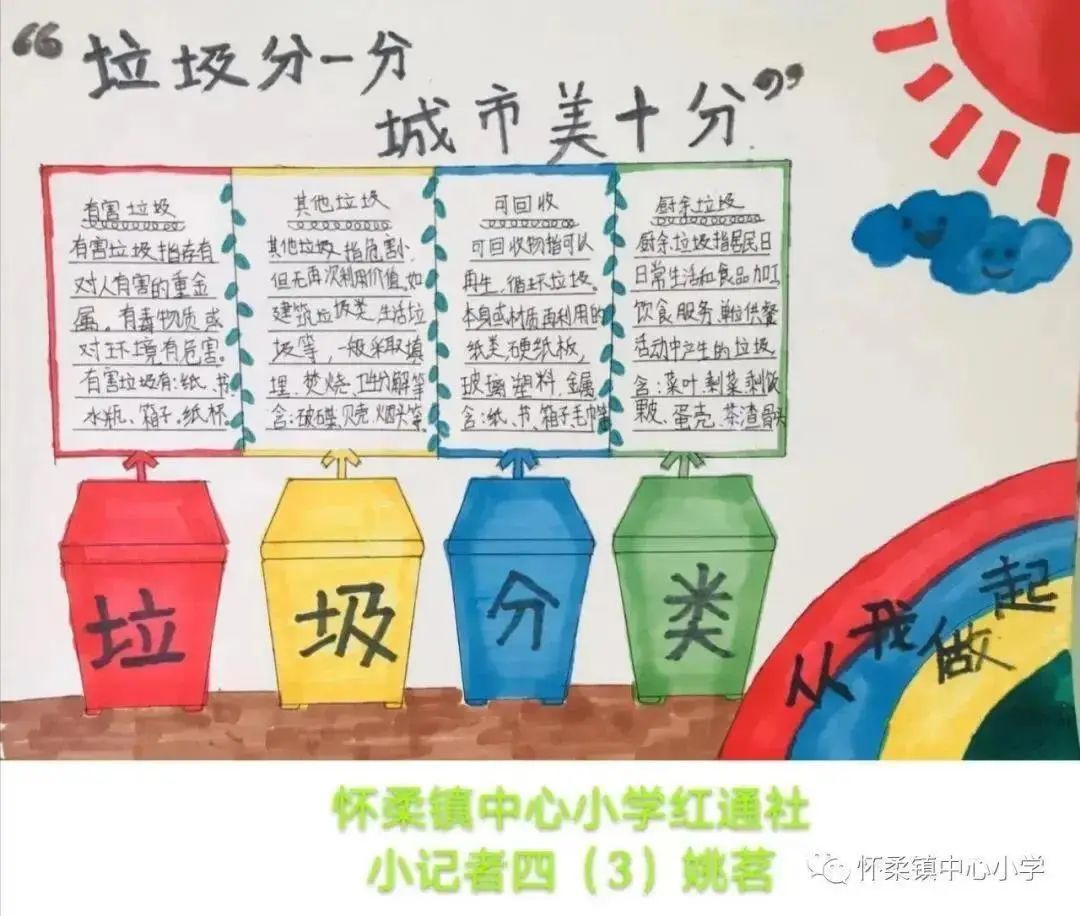 “垃圾分一分
城市美十分”
有害垃圾
有害垃圾指存有
对人有害的重金
属。有毒物质或
对环境有危害。
有害垃圾有:纸、书
水瓶、箱子。纸杯.
其他垃圾
其他垃圾指危害小
但无再次利用价值。如
建筑垃圾类,生活垃
圾等,一般采取填
埋、焚烧、卫生分解等
含:破碟、贝壳、烟头等
可回收
可回收物指可以
再生、循环垃圾。
本身或材质再利用的
纸类,硬纸板,
玻璃塑料、金属
含:纸、书、箱子毛巾
厨余垃圾
厨余垃圾指居民日
日常生活和食品加工
饮食服务、单位供餐
活动中产生的垃圾
含:菜叶、剩菜、剩饭
果皮、蛋壳、茶渣骨头
垃圾分类
从我做起
怀柔镇中心小学红通社
小记者四(3)姚茗
怀柔镇中心小学